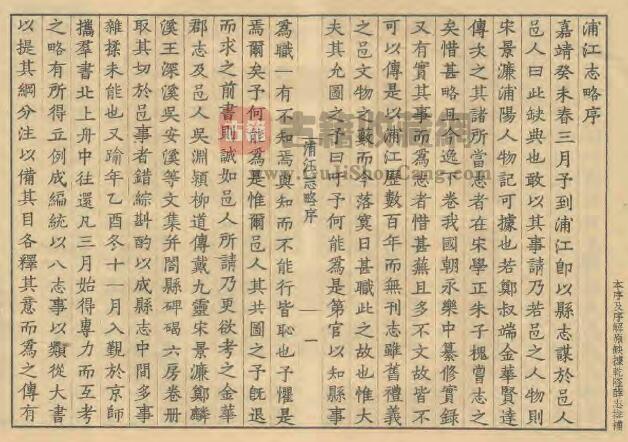 浦江志略序
嘉靖癸未春三月予到浦江卽以縣志謀於邑人
邑人曰此缺典也敢以其事請乃若邑之人物則
宋景濂浦陽人物記可據也若鄭叔端金華賢達
傳次之其諸所當志者在宋學正朱子槐嘗志之
矣惜甚略且今逸下卷我國朝永樂中纂修實錄
又有實其事而爲志者惜甚蕪且多不文故皆不
可以傳是以浦江歷數百年而無刊志雖舊禮義
之邑文物之藪而今落寞日甚職此之故也惟大
夫其允圖之予曰於予何能爲是第官以知縣事
浦江志略序
一
爲職一有不知焉與知而不能行皆恥也予懼是
焉爾矣予何能爲是惟爾邑人其共圖之予旣退
而求之前書則誠如邑人所請乃更欲考之金華
郡志及邑人吳淵潁柳道傳戴九靈宋景濂鄭麟
溪王深溪吳安溪等文集并閤縣碑碣六房卷冊
取其切於邑事者錯綜斟酌以成縣志中間多事
雜揉未能也又踰年乙酉冬十一月入覲於京師
攜羣書北上舟中往還凡三月始得專力而互考
之略有所得立例成編統以八志事以類從大書
以提其綱分注以備其目各釋其意而爲之傳有
本序及序解原缺據乾隆薛志抄補
古籍收藏網
www.GujiShouCang.com